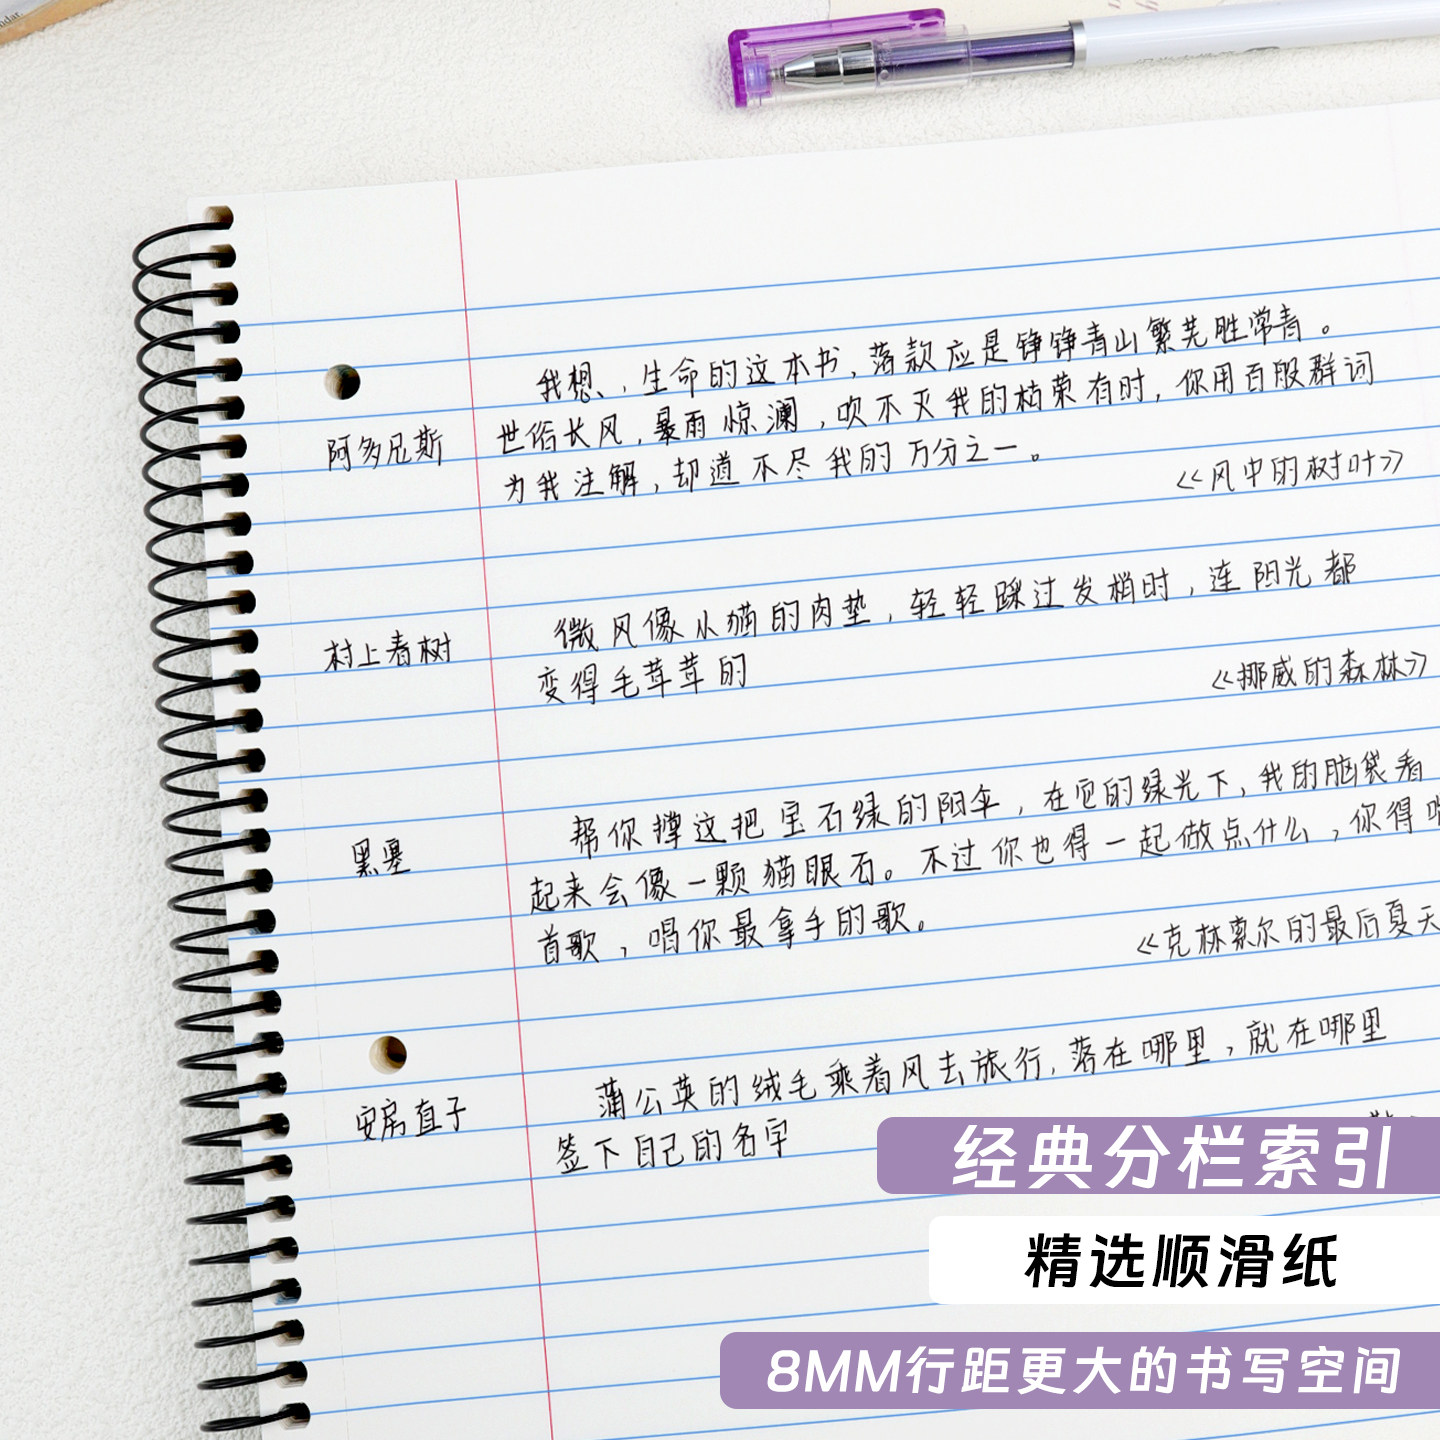 ndar.
我想、,生命的这本书,落款应是铮铮青山繁芜胜常青。
阿多尼斯
世俗长风,暴雨惊澜,吹不灭我的枯荣有时,你用百般群词
为我注解,却道不尽我的万分之一。
《风中的树叶》
村上春树
微风像小猫的肉垫,轻轻踩过发梢时,连阳光都
变得毛茸茸的
《挪威的森林》
黑塞
帮你撑这把宝石绿的阳伞,在它的绿光下,我的脑袋看
起来会像一颗猫眼石。不过你也得一起做点什么,你得唱
首歌,唱你最拿手的歌。
《克林索尔的最后夏天
安房直子
蒲公英的绒毛乘着风去旅行,落在哪里,就在哪里
签下自己的名字
经典分栏索引
精选顺滑纸
8MM行距更大的书写空间